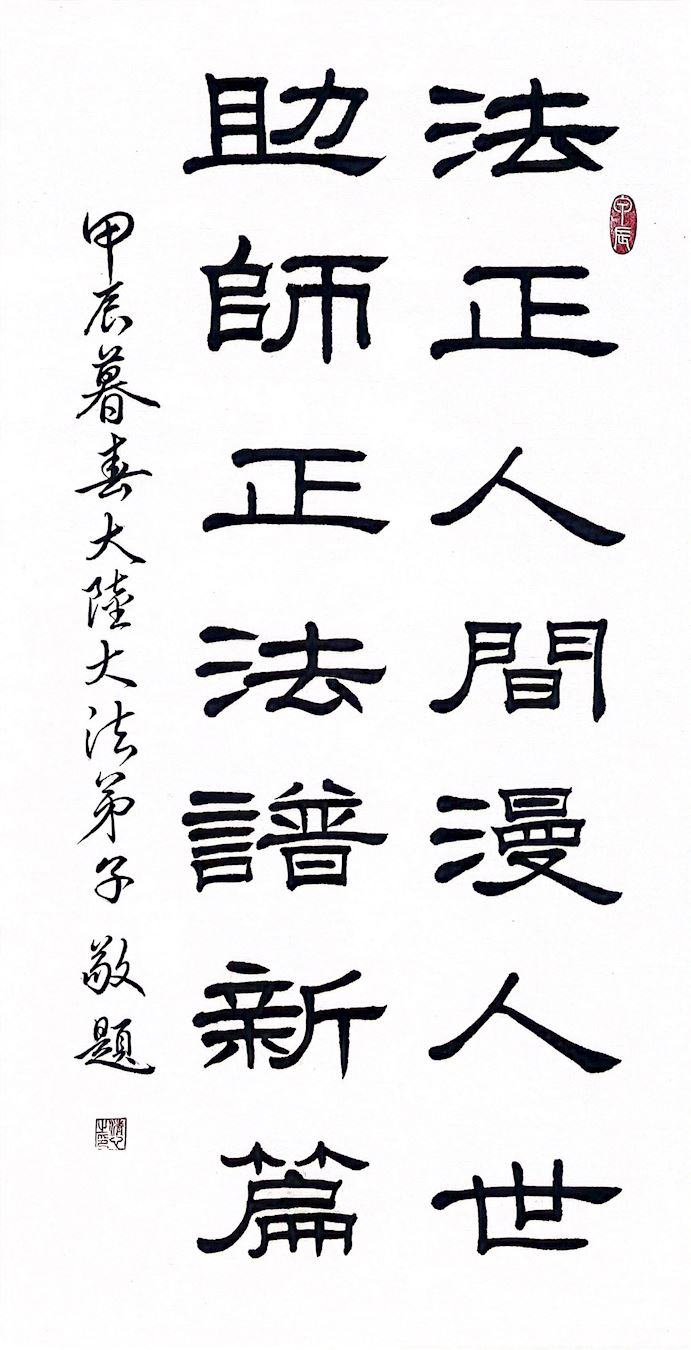 法正人間漫人世
甲辰
助師正法譜新篇
甲辰暮春大陸大法弟子 敬題